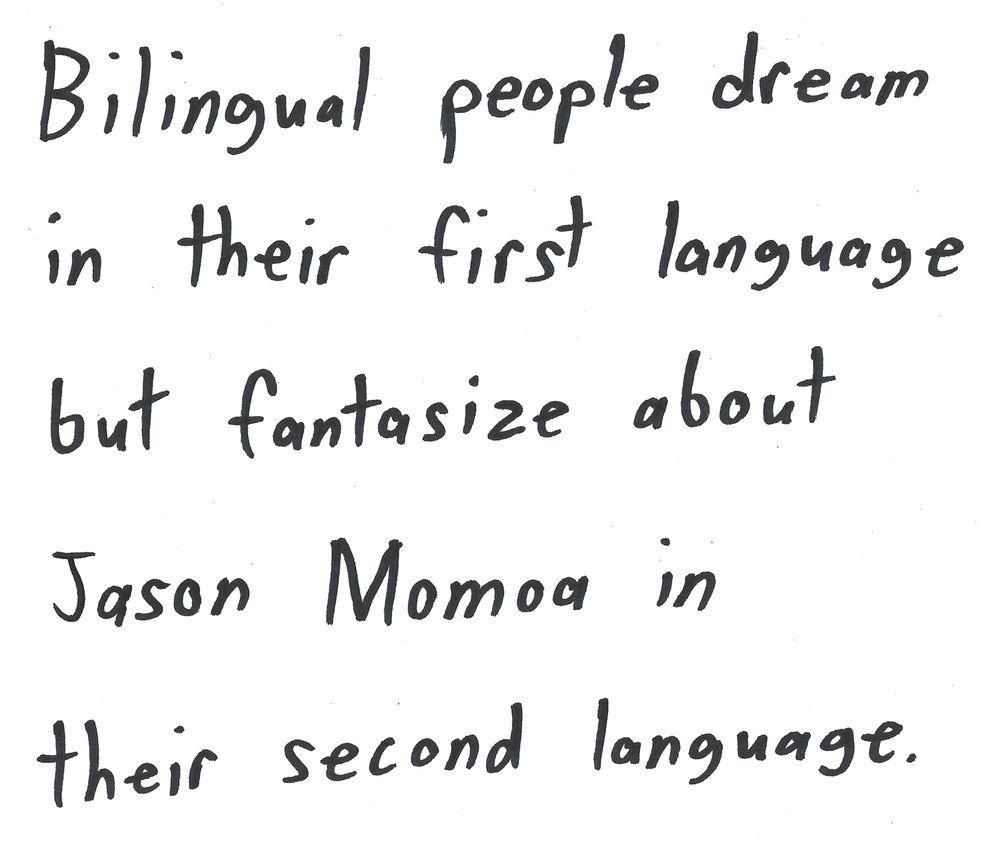 Bilingual people dream
in their first language
but fantasize about
Jason Momoa in
their second language.